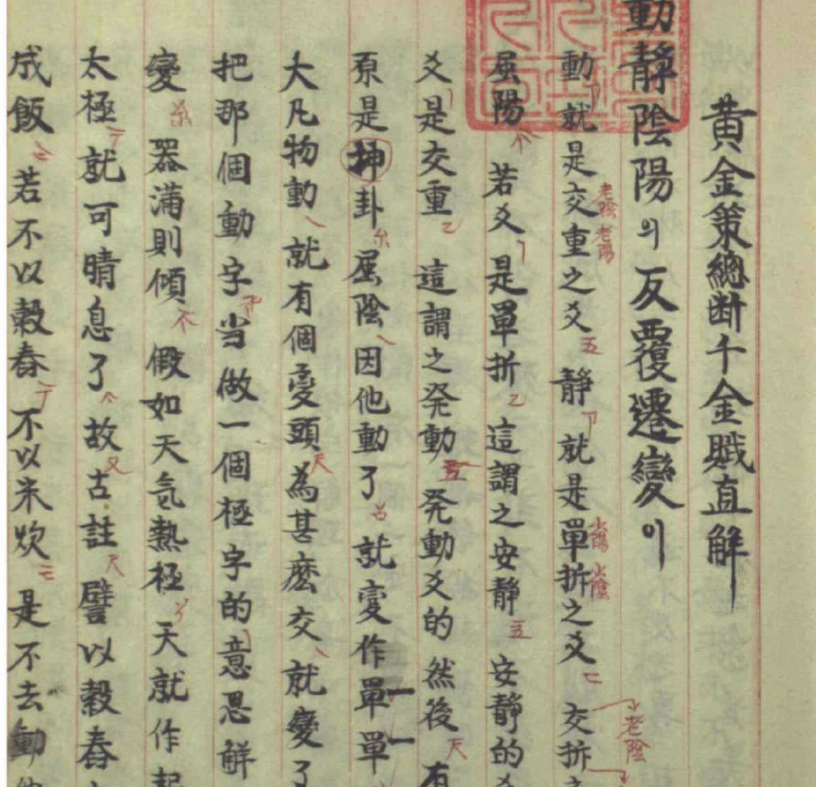 黄金策總断千金賦直解
動靜陰陽의 反覆遷變이
動就是交重之爻 靜就是單折之爻 交折之
老陰 老陽
少陽 少陰
老陰
屈陽 若爻 是單折 這謂之安靜 安靜的
爻是交重 這謂之発動 発動爻的 然後 有
原是 卦 屈陰因他動了 就変作單單
大凡物動 就有個変頭 為甚麽交 就變了
把那個動字当做一個極字的意思解
變 器滿則傾 假如天気熱極 天就作起
太極就可晴息了 故古註 譬以穀舂
成飯 若不以穀舂 不以米炊 是不去動